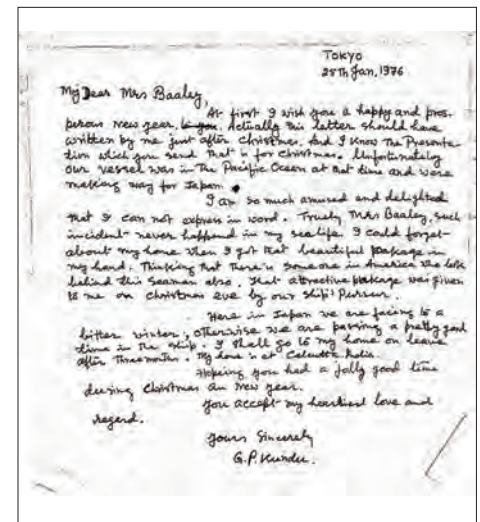 TOKYO
25Th Jan, 1976
My Dear Mrs Baaley,
At first I wish you a happy and pros-
perous new year. Actually this letter should have
written by me just after Christmas. And I know the Presenta-
tion which you send that is for Christmas. Unfortunately
our vessel was in the Pacific Ocean at that time and were
making way for Japan.
I am so much amused and delighted
that I can not express in word. Truely Mrs Baaley, such
incident never happend in my sealife. I could forget
about my home when I got that beautiful package in
my hand. Thinking that there is someone in America who
behind this seaman also. That attractive package was given
to me on Christmas eve by our ship's Purser.
Here in Japan we are facing to a
bitter winter, otherwise we are passing a pretty good
time in the ship. I shall go to my home on leave
after three months. My home is at Calcutta India.
Hoping you had a jolly good time
during Christmas an New year.
You accept my heartiest love and
regard.
Yours Sincerely
G.P. Kundu.